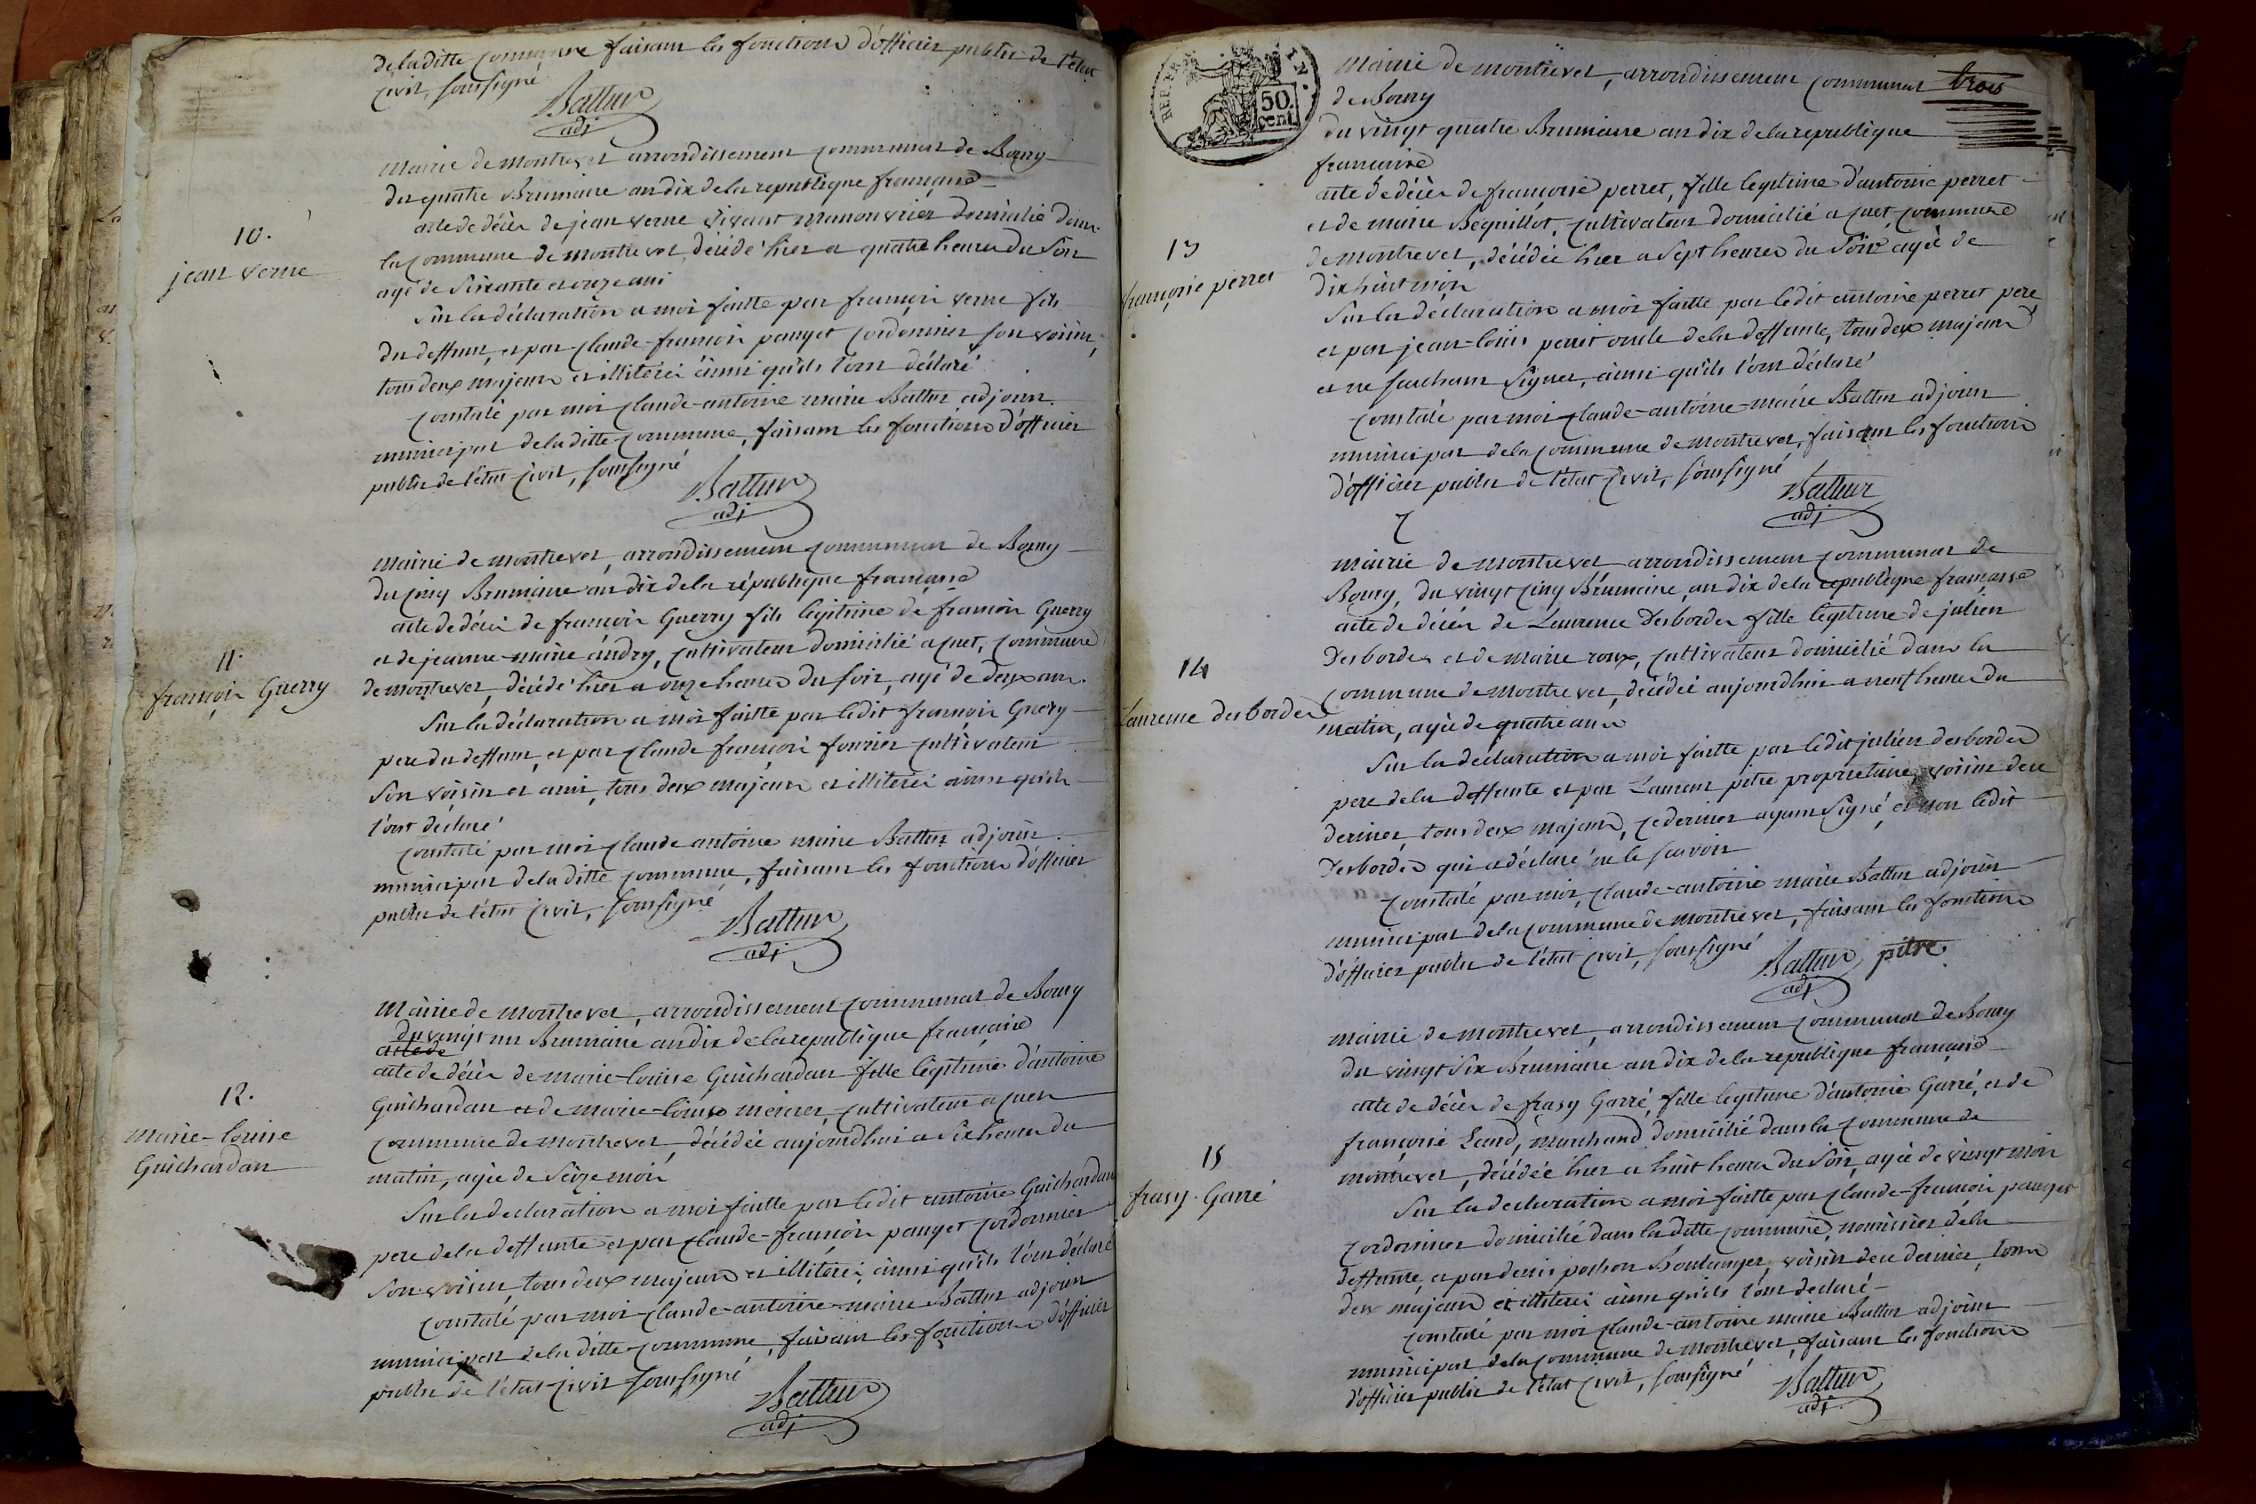 de la ditte commune faisant les fonctions d'officier public de l'état
civil, soussigné
Battur
adj
mairie de montrevel arrondissement communal de Bourg
du quatre Brumaire an dix de la republique française
10.
jean verne
acte de décès de jean verne vivant manouvrier domicilié dans
la commune de montrevel, décédé hier a quatre heures du soir
agé de soixante et onze ans
Sur la déclaration a moi faitte par françois verne fils
du deffunt, et par claude-françois pauget cordonnier son voisin,
tous deux majeurs et illiterés ainsi qu'ils l'ont déclaré
constaté par moi claude-antoine marie Battur adjoint
municipal de la ditte commune, faisant les fonctions d'officier
public de l'état civil, soussigné
Battur
adj
mairie de montrevel, arrondissement communal de Bourg
du cinq Brumaire an dix de la république française
11.
françois Guerry
acte de décès de françois Guerry fils legitime de françois Guerry
et de jeanne-marie andry, cultivateur domicilié a cuet, commune
de montrevel, décédé hier a onze heures du soir, agé de deux ans.
Sur la déclaration a moi faitte par ledit françois Guerry
pere du deffunt, et par claude françois fourier cultivateur
son voisin et ami, tous deux majeurs et illiterés ainsi qu'ils
l'ont déclaré
constaté par moi claude antoine marie Battur adjoint
municipal de la ditte commune, faisant les fonctions d'officier
public de l'état civil, soussigné
Battur
adj
Mairie de montrevel, arrondissement communal de Bourg
du vingt un Brumaire an dix de la republique française
acte de
12.
marie-louise
Guichardan
acte de décès de marie-louise Guichardan fille légitime d'antoine
Guichardan et de marie-louise mercier cultivateur a cuet
commune de montrevel, décédée aujourdhui a six heures du
matin, agée de seize mois
Sur la declaration a moi faitte par ledit antoine Guichardan
pere de la deffunte et par claude-françois pauget cordonnier
son voisin, tous deux majeurs et illiterés, ainsi qu'ils l'ont déclaré
constaté par moi claude-antoine-marie Battur adjoint
municipal de la ditte commune, faisant les fonctions d'officier
public de l'état civil soussigné
Battur
adj
REP. FRA
50.
cent.
Mairie de montrevel, arrondissement communal trois
de Bourg
du vingt quatre Brumaire an dix de la republique
française
13
françoise perret
acte de décès de françoise perret, fille legitime d'antoine perret
et de marie Bequillot, cultivateur domicilié a cuet commune
de montrevel, décédée hier a sept heures du soir agée de
dix huit mois
Sur la déclaration a moi faitte par ledit antoine perret pere
et par jean-louis perret oncle de la deffunte, tous deux majeurs
et ne sachant signer, ainsi qu'ils l'ont déclaré
constaté par moi claude-antoine-marie Battur adjoint
municipal de la commune de montrevel, faisant les fonctions
d'officier public de l'état civil, soussigné
Battur
adj
mairie de montrevel arrondissement communal de
Bourg, du vingt cinq Brumaire an dix de la republique française
14
Laurence desbordes
acte de décès de Laurence desbordes fille légitime de julien
desbordes et de marie roux, cultivateur domicilié dans la
commune de montrevel, décédée aujourdhui a neuf heures du
matin, agée de quatre ans
Sur la declaration a moi faitte par ledit julien desbordes
pere de la deffunte et par Laurent pitre proprietaire, voisin de ce
dernier, tous deux majeurs, ce dernier ayant signé, et non ledit
desbordes qui a déclaré ne le savoir
constaté par moi, claude-antoine marie Battur adjoint
municipal de la commune de montrevel, faisant les fonctions
d'officier public de l'état civil, soussigné
Battur pitre.
adj
mairie de montrevel, arrondissement communal de Bourg
du vingt six Brumaire an dix de la republique française
15
frasy Garré
acte de décès de frasy Garré, fille legitime d'antoine Garré, et de
françoise Land, marchand domicilié dans la commune de
montrevel, décédée hier a huit heures du soir, agée de vingt mois
Sur la declaration a moi faitte par claude-françois pauget
cordonnier domicilié dans la ditte commune, nourissier de la
deffunte, et par denis pochon Boulanger, voisin de ce dernier, tous
deux majeurs et illiterés ainsi qu'ils l'ont declaré
constaté par moi claude-antoine marie Battur adjoint
municipal de la commune de montrevel, faisant les fonctions
d'officier public de l'état civil, soussigné
Battur
adj.